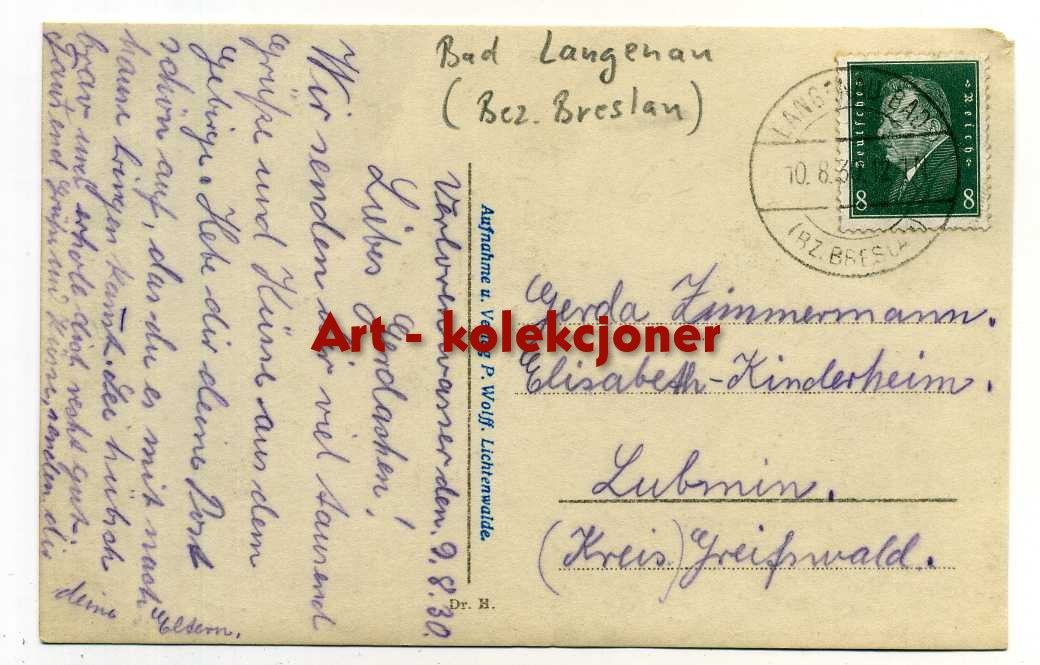 Bad Langenau
(Bez. Breslau)
Verlorenwasser den. 9.8.30.
Liebes Gerdachen!
Wir senden dir viel tausend
Grüße und Küsse aus dem
Gebirge. Hebe dir deine Post
schön auf, das du es mit nach
hause bringen kanst. Sei hübsch
brav und erhole dich recht gut.
Tausend Grüße und Küsse senden dir
deine Eltern.
Aufnahme u. Verlag P. Wolff. Lichtenwalde.
Dr. H.
Deutsches Reich
8 8
LANGENAU BAD
10.8.3
(BZ. BRESLA
Gerda Zimmermann.
Elisabeth-Kinderheim.
Lubmin.
(Kreis) Greifswald.
Art - kolekcjoner